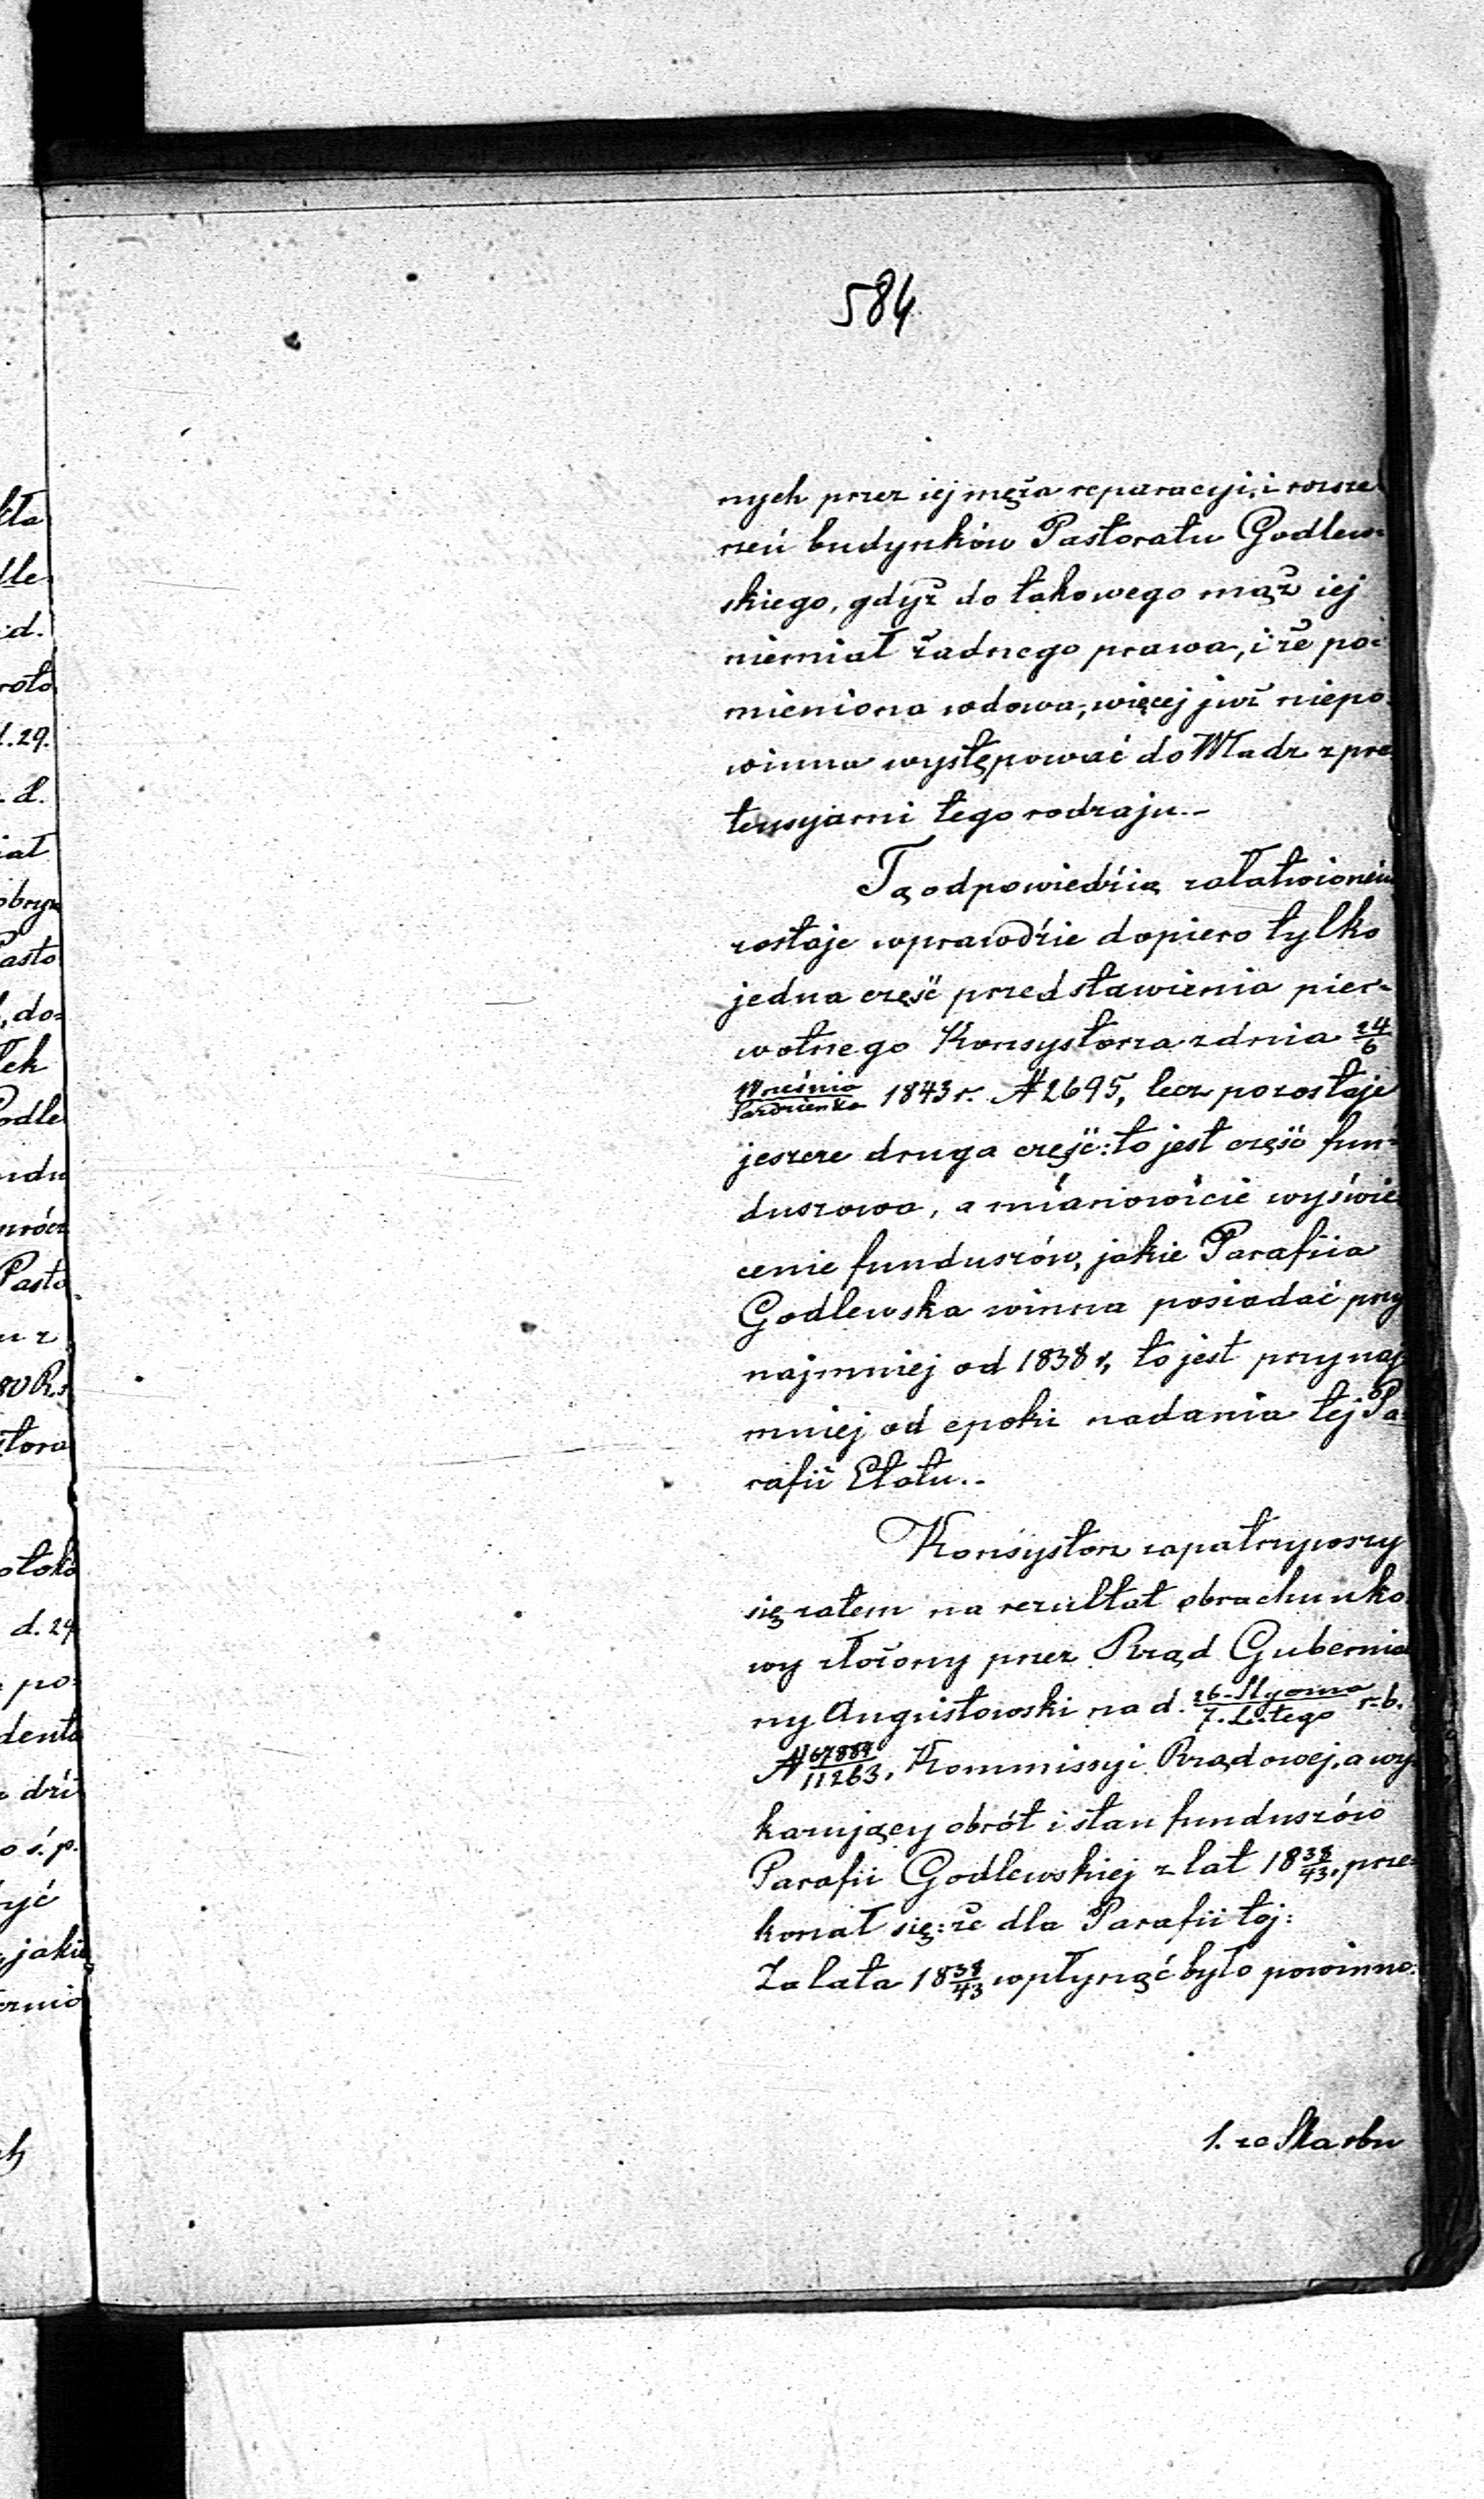 584
nych przez iej męża reparacyi, i rozsze
rzeń budynków Pastoratu Godlew-
skiego, gdyż do takowego mąż iej
niemiał żadnego prawa, i że po-
mieniona wdowa, więcej już niepo-
winna występować do Władz z pre
tensyjami tego rodzaju.-
Tą odpowiedzią załatwioném
zostaje wprawdzie dopiero tylko
jedna część przedstawienia pier-
wotnego Konsystorza z dnia 24/6
Września/Października 1843 r. N 2695, lecz pozostaje
jeszcze druga część: to jest część fun-
duszowa, a mianowicie wyświe
cenie funduszów, jakie Parafiia
Godlewska winna posiadać przy
najmniej od 1838 r, to jest przynaj
mniej od epoki nadania tej Pa-
rafii Etatu.-
Konsystorz zapatrzywszy
się zatem na rezultat obrachunko
wy złożony przez Rząd Gubernial
ny Augustowski na d. 26 Stycznia/7. Lutego r. b.
N 67884/11263, Kommissyi Rządowej, a wy-
kazujący obrót i stan funduszów
Parafii Godlewskiej z lat 1838/43, prze-
konał się: że dla Parafii tej:
Za lata 1838/43 wpłynąć było powinno:
1. ze Skarbu
kła
dle
id.
roto
d. 29.
. d.
iał
obrym
Pasto
, do-
łek
Godle
ndu
prócz
Pasto
u z
80 R.s
stora
otokó
d. 24
po-
denta
dzi
o ś. p.
yć
jakie
ernia
ch